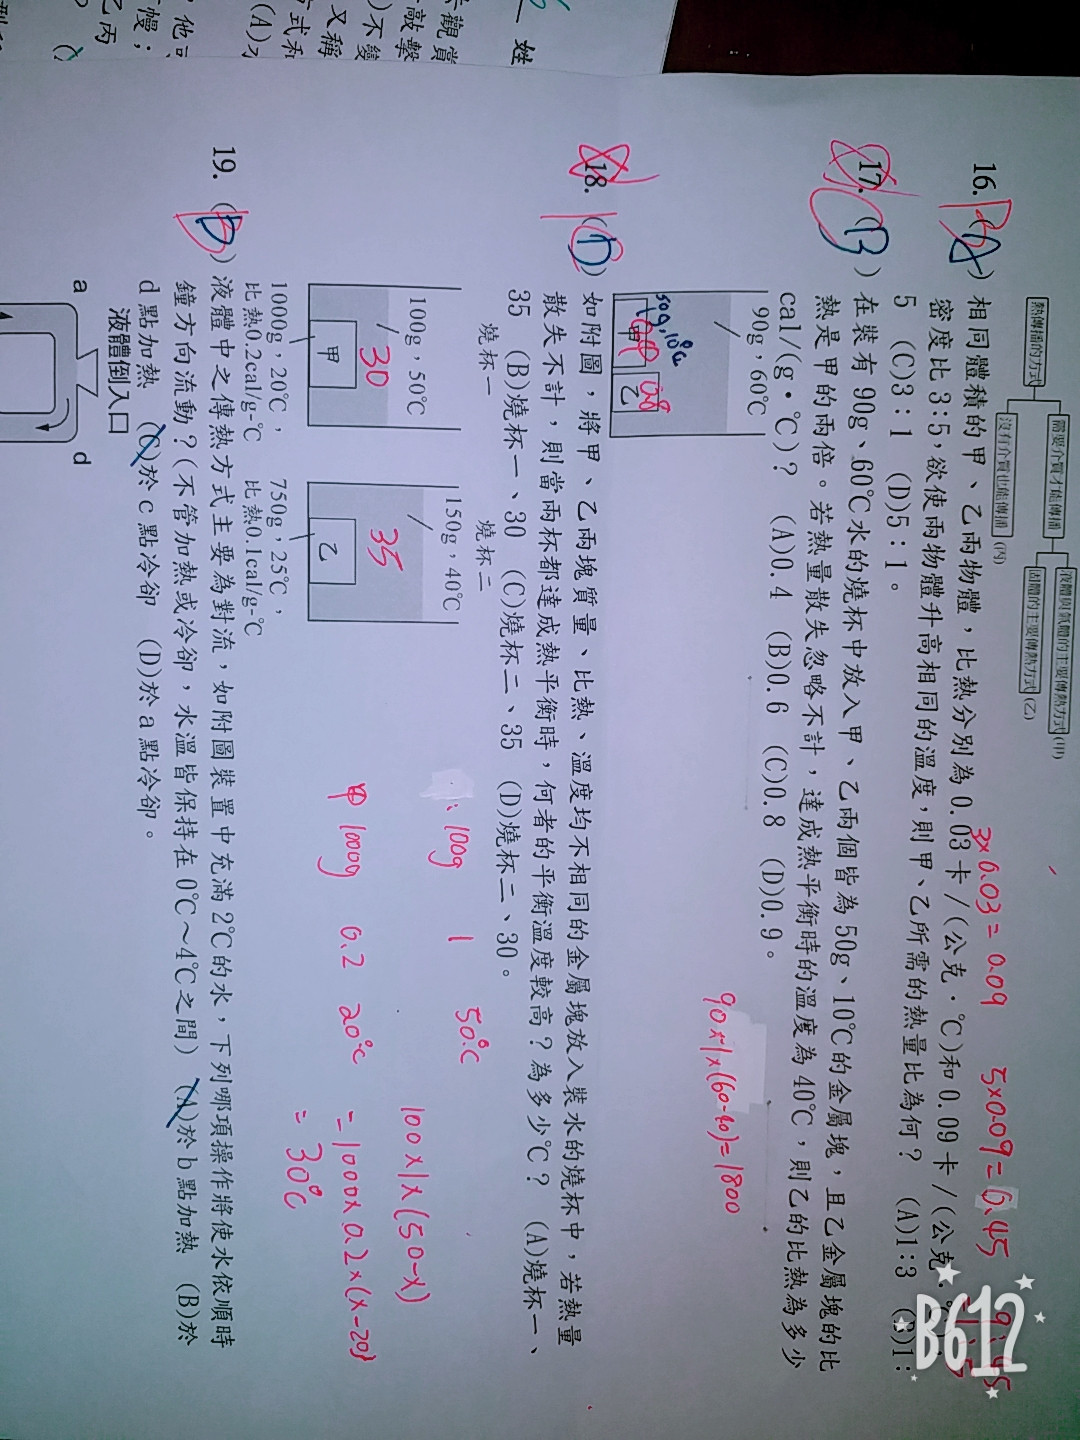 姓
熱傳播的方式
需要介質才能傳播
沒有介質也能傳播(丙)
液體與氣體的主要傳熱方式(甲)
固體的主要傳熱方式(乙)
3×0.03=0.09 5×0.09=0.45
16. 相同體積的甲、乙兩物體，比熱分別為0.03卡/(公克·℃)和0.09卡/(公克
密度比3:5，欲使兩物體升高相同的溫度，則甲、乙所需的熱量比為何？ (A)1:3 (B)1:
5 (C)3:1 (D)5:1。
17. (B) 在裝有90g、60℃水的燒杯中放入甲、乙兩個皆為50g、10℃的金屬塊，且乙金屬塊的比
熱是甲的兩倍。若熱量散失忽略不計，達成熱平衡時的溫度為40℃，則乙的比熱為多少
cal/(g·℃)？ (A)0.4 (B)0.6 (C)0.8 (D)0.9。
90g，60℃
50g,10℃
甲 乙
0.8
90×1×(60-40)=1800
18. (D) 如附圖，將甲、乙兩塊質量、比熱、溫度均不相同的金屬塊放入裝水的燒杯中，若熱量
散失不計，則當兩杯都達成熱平衡時，何者的平衡溫度較高？為多少℃？ (A)燒杯一、
35 (B)燒杯一、30 (C)燒杯二、35 (D)燒杯二、30。
燒杯一 燒杯二
100g，50℃ 150g，40℃
30 35
甲 乙
1000g，20℃， 750g，25℃，
比熱0.2cal/g-℃ 比熱0.1cal/g-℃
100g 1 50℃
甲 1000g 0.2 20℃
100×1×(50-x)
=1000×0.2×(x-20)
=30℃
19. 液體中之傳熱方式主要為對流，如附圖裝置中充滿2℃的水，下列哪項操作將使水依順時
鐘方向流動？(不管加熱或冷卻，水溫皆保持在0℃～4℃之間) (A)於b點加熱 (B)於
d點加熱 (C)於c點冷卻 (D)於a點冷卻。
液體倒入口
a d
B612